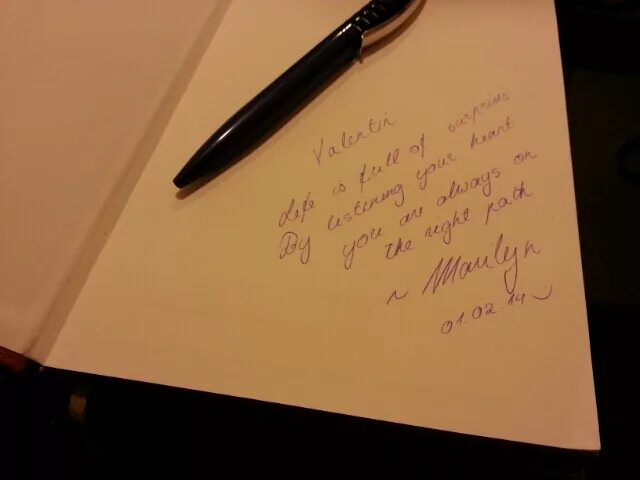 Valentin
Life is full of surprises
By listening your heart
you are always on
the right path
~ Marilyn
01.02.14